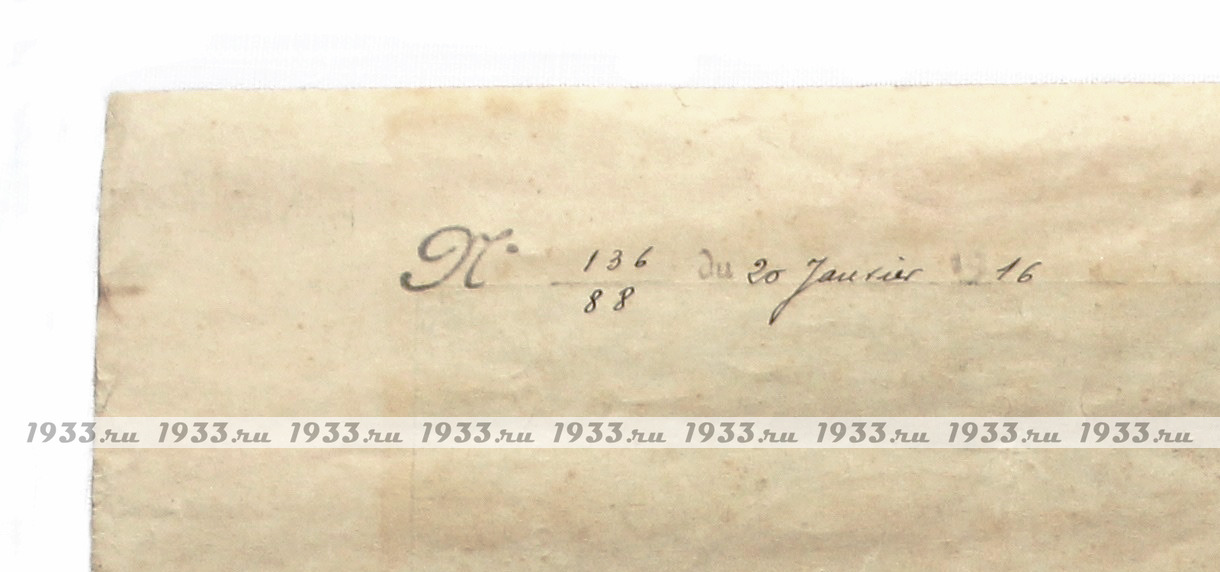 N° 136 du 20 Janvier 1916
88
1933.ru 1933.ru 1933.ru 1933.ru 1933.ru 1933.ru 1933.ru 1933.ru 1933.ru